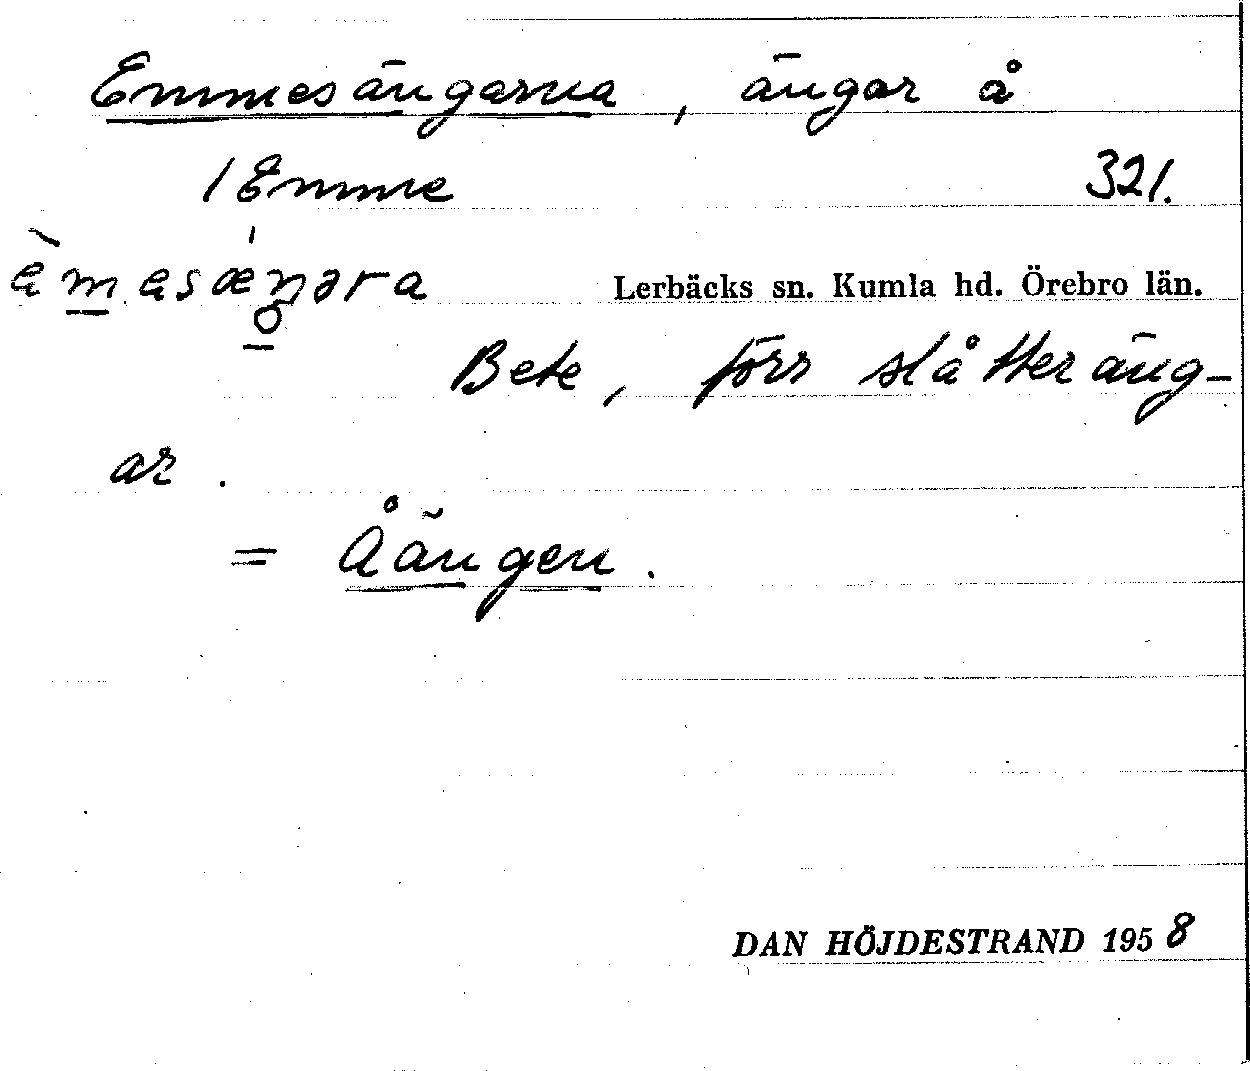 Emmesängarna, ängar å
1 Emme 321.
èmasæŋəra Lerbäcks sn. Kumla hd. Örebro län.
Bete, förr slåtteräng-
ar.
= Åängen.
DAN HÖJDESTRAND 1958